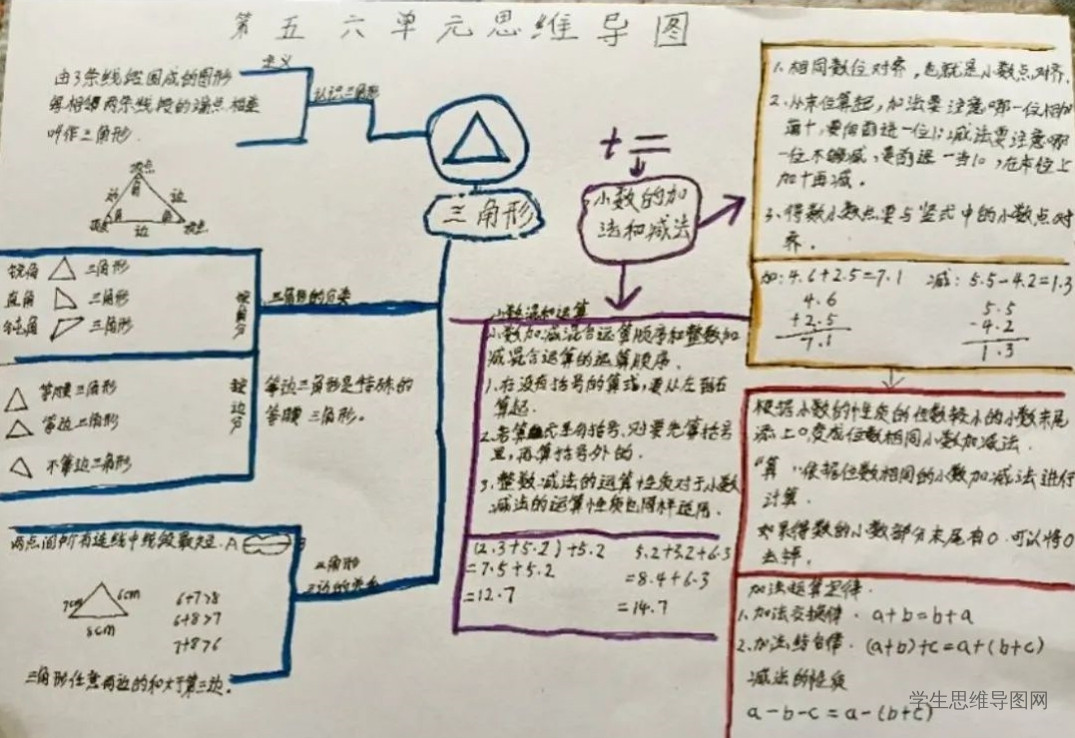 第五六单元思维导图
定义
由3条线段围成的图形
每相邻两条线段的端点相连
叫作三角形.
认识三角形
顶点
角
边
边
角
角
顶点
边
顶点
三角形
锐角 三角形
直角 三角形
钝角 三角形
按角分
三角形的分类
等腰三角形
等边三角形
不等边三角形
按边分
等边三角形是特殊的
等腰三角形。
两点间所有连线中线段最短. A B
三角形
三边的关系
7cm
6cm
8cm
6+7>8
6+8>7
7+8>6
三角形任意两边的和大于第三边。
小数的加
法和减法
1.相同数位对齐，也就是小数点对齐.
2.从末位算起，加法要注意哪一位相加
满十，要向前进一位1；减法要注意哪
一位不够减，要前退一当10，在本位上
加十再减.
3.得数小数点要与竖式中的小数点对
齐.
加：4.6+2.5=7.1
4.6
+2.5
7.1
减：5.5-4.2=1.3
5.5
-4.2
1.3
小数混和运算
小数加减混合运算顺序和整数加
减混合运算的运算顺序.
1.在没有括号的算式，要从左到右
算起.
2.若算式里有括号、则要先算括号
里，再算括号外的.
3.整数减法的运算性质对于小数
减法的运算性质也同样适用.
(2.3+5.2)+5.2
=7.5+5.2
=12.7
5.2+3.2+6.3
=8.4+6.3
=14.7
根据小数的性质的位数较小的小数末尾
添上0,变成位数相同小数加减法.
"算"依据位数相同的小数加减法进行
计算.
如果得数的小数部分末尾有0.可以将0
去掉.
加法运算定律.
1.加法交换律. a+b=b+a
2.加法结合律. (a+b)+c=a+(b+c)
减法的性质
a-b-c=a-(b+c)
学生思维导图网